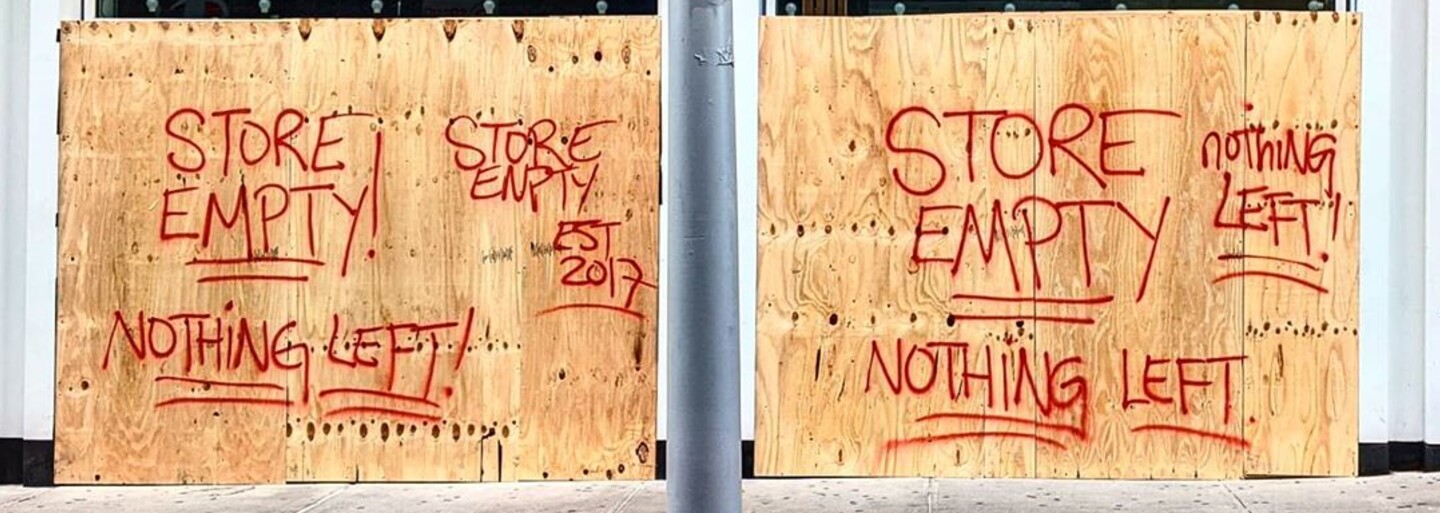 STORE
EMPTY!
NOTHiNG LEFT!
STORE
EMPTY
EST
2017
STORE
EMPTY
NOTHING LEFT.
nOThiNG
LEFT!